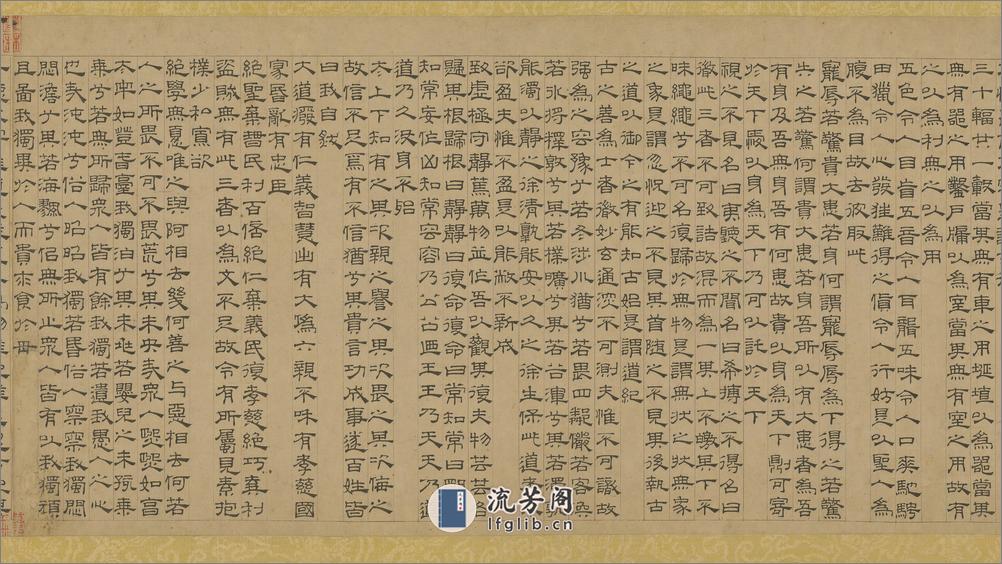 三十輻廿一轂當其無有車之用埏埴以為器當其
無有器之用鑿戶牖以為室當其無有室之用故有
之以為利無之以為用
五色令人目盲五音令人耳聾五味令人口爽馳騁
田獵令人心發狂難得之貨令人行妨是以聖人為
腹不為目故去彼取此
寵辱若驚貴大患若身何謂寵辱辱為下得之若驚
失之若驚何謂貴大患若身吾所以有大患者為吾
有身及吾無身吾有何患故貴以身為天下則可寄
於天下愛以身為天下乃可以託於天下
視之不見名曰夷聽之不聞名曰希搏之不得名曰
微此三者不可致詰故混而為一其上不皦其下不
昧繩繩兮不可名復歸於無物是謂無狀之狀無象
之象是謂忽恍迎之不見其首隨之不見其後執古
之道以御今之有能知古始是謂道紀
古之善為士者微妙玄通深不可測夫惟不可識故
強為之容豫兮若冬涉川猶兮若畏四鄰儼若客渙
若冰將釋敦兮其若樸曠兮其若谷渾兮其若濁孰
能濁以靜之徐清孰能安以久之徐生保此道者不
欲盈夫惟不盈是以能敝不新成
致虛極守靜篤萬物並作吾以觀其復夫物芸芸各
歸其根歸根曰靜靜曰復命復命曰常知常曰明不
知常妄作凶知常容容乃公公乃王王乃天天乃道
道乃久沒身不殆
太上下知有之其次親之譽之其次畏之其次侮之
故信不足焉有不信猶兮其貴言功成事遂百姓皆
曰我自然
大道廢有仁義智慧出有大偽六親不和有孝慈國
家昏亂有忠臣
絕聖棄智民利百倍絕仁棄義民復孝慈絕巧棄利
盜賊無有此三者以為文不足故令有所屬見素抱
樸少私寡欲
絕學無憂唯之與阿相去幾何善之與惡相去何若
人之所畏不可不畏荒兮其未央哉衆人熙熙如享
太牢如登春臺我獨泊兮其未兆若嬰兒之未孩乘
乘兮若無所歸衆人皆有餘我獨若遺我愚人之心
也哉沌沌兮俗人昭昭我獨若昏俗人察察我獨悶
悶澹兮其若海飂兮似無所止衆人皆有以我獨頑
且鄙我獨異於人而貴求食於母
流芳阁
lfglib.cn